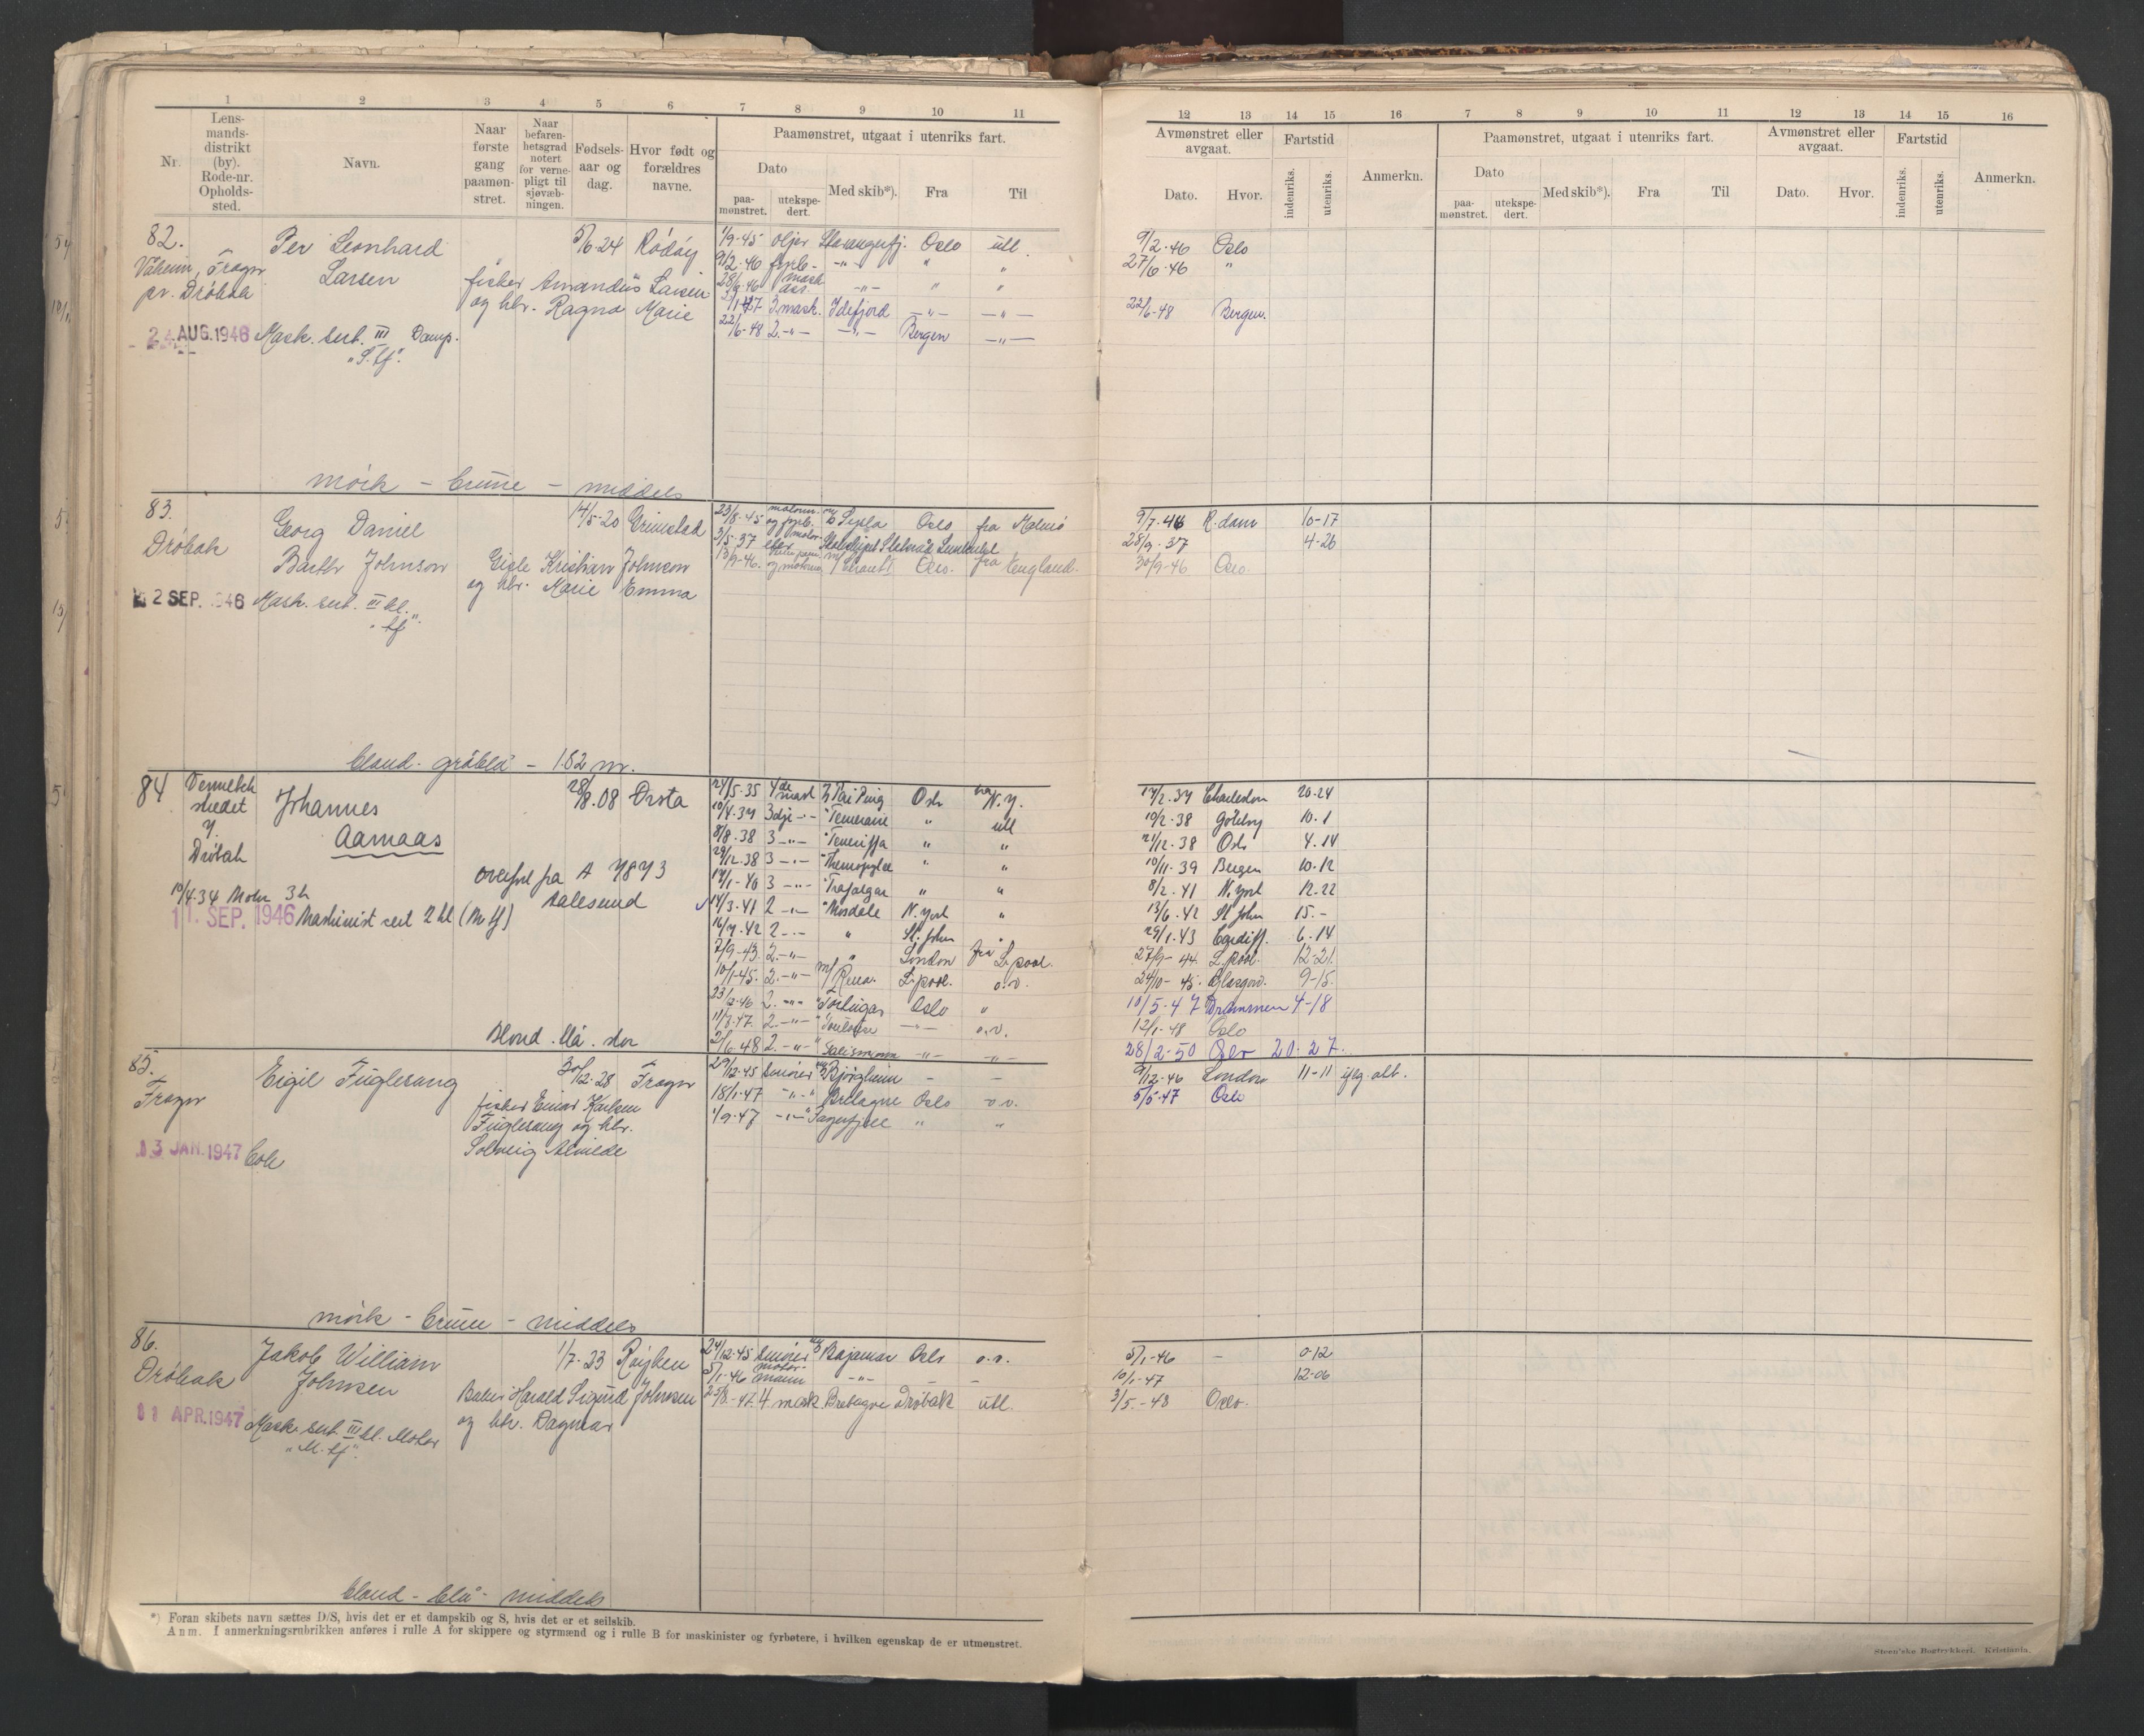 1 2 3 4 5 6 7 8 9 10 11
Nr.
Lens-
mands-
distrikt
(by).
Rode-nr.
Opholds-
sted.
Navn.
Naar
første
gang
paamøn-
stret.
Naar
befaren-
hetsgrad
notert
for verne-
pligt til
sjøvæb-
ningen.
Fødsels-
aar og
dag.
Hvor født og
forældres
navne.
Paamønstret, utgaat i utenriks fart.
Dato
paa-
mønstret.
utekspe-
dert.
Med skib*).
Fra
Til
82.
Per Leonhard
Larsen
5/6-24 Rødøy
Frogn
pr. Drøbak
fisker Amandus Larsen
og htr. Ragna Marie
24 AUG. 1946 Mask. sert. III Damp.
1/9-45 oljer Stavangerfj. Oslo utl.
9/2-46 fyrb. -"- " "
28/6-46 mask. ass. -"- " "
3 mask. Idefjord -"- -"-
22/6-48 2.-"- -"- Bergen -"-
mørk - brune - middels
83.
Drøbak
Georg Daniel
Barth Johnson
14/5-20 Grimstad
Gisle Kristian Johnson
og htr. Marie Emma
2 SEP. 1946 Mask. sert. III kl.
23/8-45 motorm. og fyrb. Oslo fra Malmö
3/5-37
13/9-46. Oslo. fra England.
bland - gråblå - 1.82 m.
84
Drøbak
Johannes
Aamaas
28/8.08 Ørsta
overført fra A 7873
Aalesund
10/4.34 Motor 3 kl
11. SEP. 1946 Maskinist sert 2 kl (M.tf)
24/5-35 4de mask Tai Ping Oslo fra N.Y.
3dje -"- Temeraire " utl
8/8-38 3 -"- Teneriffa " "
29/12-38 3 -"- Thermopylæ " "
3 -"- Trafalgar " "
14/3-41 2 -"- Mosdale N.York "
2 -"- " St. John "
7/9-43. 2.-"- " London fra L.pool.
10/1-45. 2.-"- m/ Rena. L.pool. o.v.
2.-"- Oslo "
11/8.47. 2.-"- Toulouse -"- o.v.
2/6-48 2.-"- Talisman -"- -"-
Blond. blå. stor
85.
Frogn
Eigil Fuglesang
30/12-28 Frogn
fisker Einar Karlsen
Fuglesang og htr.
Solveig Alvilde
13 JAN. 1947
29/12-45 smører Bjørgheim - -
18/1-47 -"- Bretagne Oslo o.v.
1/9-47 -"- " "
mørk - brune - middels
86.
Drøbak
Jakob William
Johnsen
1/7-23 Røyken
Harald Sigurd Johnsen
og htr. Dagmar
11 APR. 1947 Mask. sert. III kl. Motor
"M.tf".
24/12-45 smører Bajamar Oslo o.v.
5/1-46 motor-
mann -"- - -
4 mask. Bretagne Drøbak utl.
bland - blå - middels
*) Foran skibets navn sættes D/S, hvis det er et dampskib og S, hvis det er et seilskib.
Anm. I anmerkningsrubrikken anføres i rulle A for skippere og styrmænd og i rulle B for maskinister og fyrbøtere, i hvilken egenskap de er utmønstret.
12 13 14 15 16 7 8 9 10 11 12 13 14 15 16
Avmønstret eller
avgaat.
Dato.
Hvor.
Fartstid
indenriks.
utenriks.
Anmerkn.
Paamønstret, utgaat i utenriks fart.
Dato
paa-
mønstret.
utekspe-
dert.
Med skib*).
Fra
Til
Avmønstret eller
avgaat.
Dato.
Hvor.
Fartstid
indenriks.
utenriks.
Anmerkn.
9/2-46 Oslo
27/6-46 "
22/6-48 Bergen.
9/7-46 R.dam 10-17
28/9-37 4-26
30/9-46 Oslo.
Charleston 20-24
10/2-38 Göteborg 10-1
21/12-38 Oslo 4-14
10/11-39 Bergen 10-12
8/2-41 N.York 12-22
13/6-42 St John 15.-
29/1-43 Cardiff. 6-14
27/9-44. L.pool. 12-21.
24/10-45. Glasgow. 9-15.
10/5-47 Drammen 4-18
12/1-48 Oslo
28/2-50 Oslo 20-27.
9/12-46 London 11-11 iflg. att.
5/5-47 Oslo
5/1-46 - 0-12
10/1-47 12-06
3/5-48 Oslo.
Steen'ske Bogtrykkeri. Kristiania.